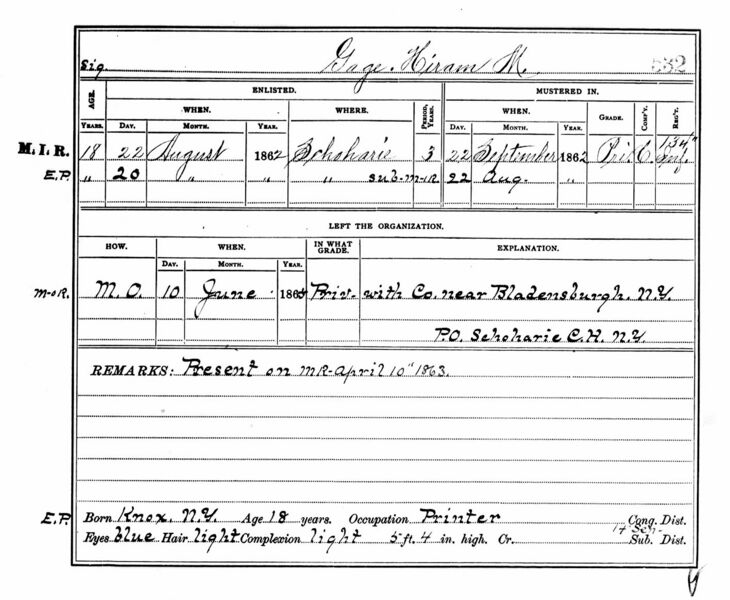 Sig. Gage. Hiram M. 532
AGE. ENLISTED. MUSTERED IN.
WHEN. WHERE. PERIOD, YEARS. WHEN. GRADE. COMP'Y. REG'T.
YEARS. DAY. MONTH. YEAR. DAY. MONTH. YEAR.
M.I.R. 18 22 August 1862 Schoharie 3 22 September 1862 Pri. C. 134" Inf.
E.P. " 20 " " " sub-m-i-R 22 Aug. "
LEFT THE ORGANIZATION.
HOW. WHEN. IN WHAT GRADE. EXPLANATION.
DAY. MONTH. YEAR.
m-o-R. M.O. 10 June 1865 Priv- with Co. near Bladensburgh. N.Y.
P.O. Schoharie C.H. N.Y.
REMARKS: Present on MR-April 10" 1863.
E.P. Born Knox. N.Y. Age 18 years. Occupation Printer Cong. Dist.
14 Sen-
Eyes blue Hair light Complexion light 5 ft. 4 in. high. Cr. Sub. Dist.